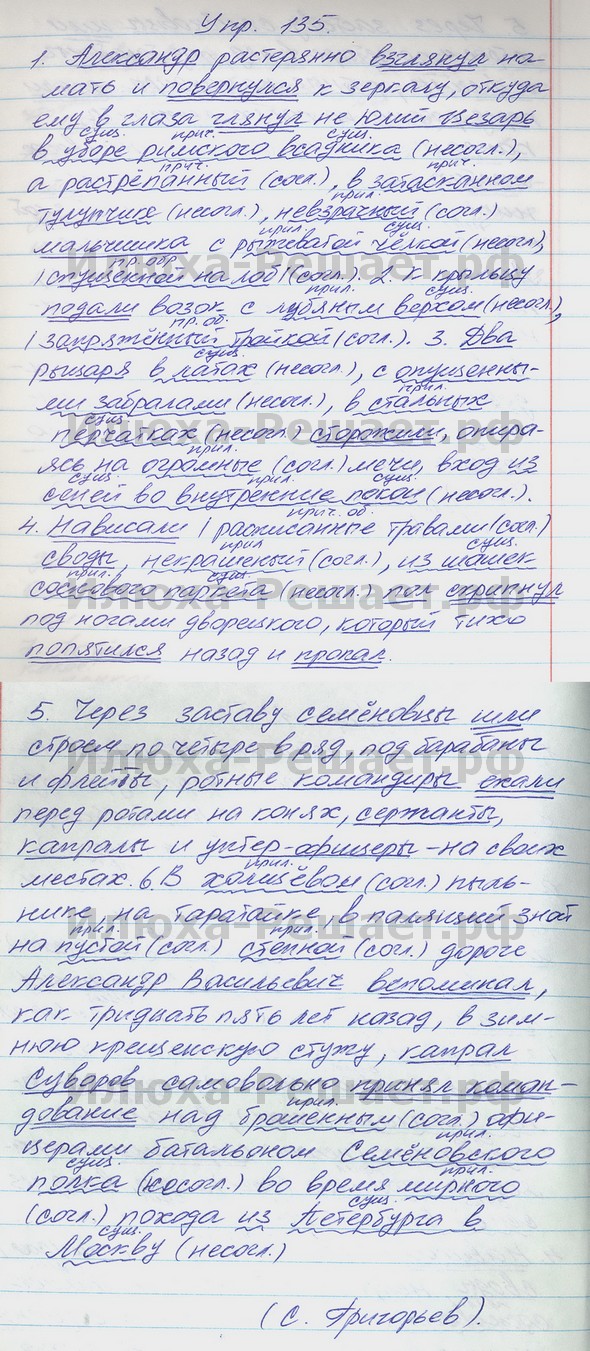 Упр. 135.
1. Александр растерянно взглянул на
мать и повернулся к зеркалу, откуда
ему в глаза глянул не Юлий Цезарь
сущ. прич. сущ.
в уборе римского всадника (несогл.),
прич. прич.
а растрёпанный (согл.), в затасканном
прил.
тулупчике (несогл.), невзрачный (согл.)
прил. сущ.
мальчишка с рыжеватой чёлкой (несогл),
пр. обр
|спущенной на лоб| (согл.). 2. К крыльцу
прил. сущ.
подали возок с лубяным верхом (несогл.),
пр. об.
| запряжённый тройкой (согл.). 3. Два
сущ.
рыцаря в латах (несогл.), с опущенны-
прил.
ми забралами (несогл.), в стальных
сущ.
перчатках (несогл) сторожили, опира-
прил.
ясь на огромные (согл.) мечи, вход из
сущ. прил. сущ.
сеней во внутренние покои (несогл.).
прич. об.
4. Нависали | расписанные травами| (согл.)
прил сущ.
своды, некрашеный (согл.), из шашек
прил. сущ.
соснового паркета (несогл.) пол скрипнул
под ногами дворецкого, который тихо
попятился назад и пропал.
5. Через заставу семёновцы шли
строем по четыре в ряд, под барабаны
и флейты, ротные командиры ехали
перед ротами на конях, сержанты,
капралы и унтер-офицеры - на своих
прил.
местах. 6. В холщёвом (согл.) пыль-
нике, на таратайке, в палящий зной
прил. прил.
на пустой (согл.) степной (согл.) дороге
Александр Васильевич вспоминал,
как тридцать пять лет назад, в зим-
нюю крещенскую стужу, капрал
Суворов самовольно принял коман-
прил.
дование над брошенным (согл.) офи-
прил.
церами батальоном Семёновского
сущ. прил.
полка (несогл.) во время мирного
сущ.
(согл.) похода из Петербурга в
сущ.
Москву (несогл.)
(С. Григорьев).
Илюха-Решает.рф
Илюха-Решает.рф
Илюха-Решает.рф
Илюха-Решает.рф
Илюха-Решает.рф
Илюха-Решает.рф